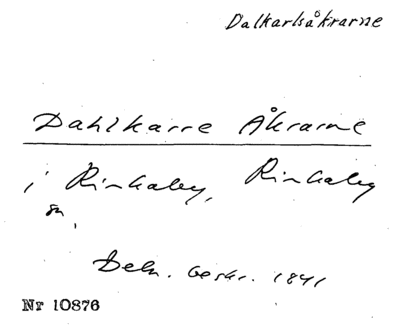 Dalkarlsåkrarne
Dahlkarre Åkrarne
i Rinkaby, Rinkaby
sn,
Deln. beskr. 1841
Nr 10876